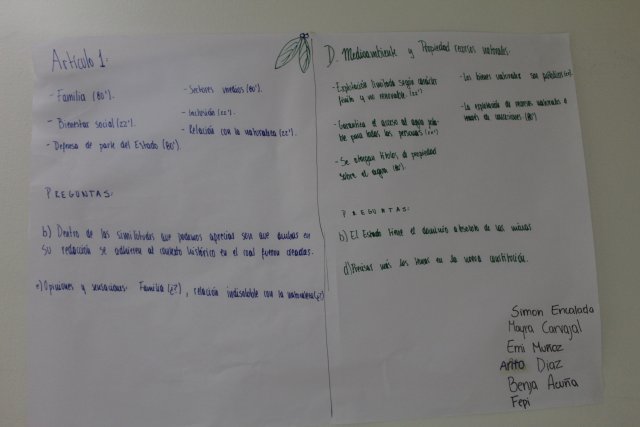 Artículo 1:
- Familia (80').
- Bienestar social (22').
- Defensa de parte del Estado (80').
- Sectores medios (80').
- Inclusión (22').
- Relación con la naturaleza (22').
PREGUNTAS:
b) Dentro de las similitudes que podemos apreciar son que ambas en
su redacción se adhieren al contexto histórico en el cual fueron creadas.
e) Opiniones y sensaciones: Familia (¿?), relación indisoluble con la naturaleza (¿?)
D. Medioambiente y Propiedad recursos naturales:
- Explotación limitada según carácter
finito y no renovable. (22')
- Garantiza el acceso al agua pota-
ble para todas las personas (22')
- Se otorgan títulos de propiedad
sobre el agua (80').
- Los bienes naturales son públicos (22')
- La explotación de recursos naturales a
través de concesiones (80')
PREGUNTAS:
b) El Estado tiene el dominio absoluto de las minas
d) Precisar más los temas en la nueva constitución.
Simon Encalada
Mayra Carvajal
Emi Muñoz
Anto Diaz
Benja Acuña
Fepi